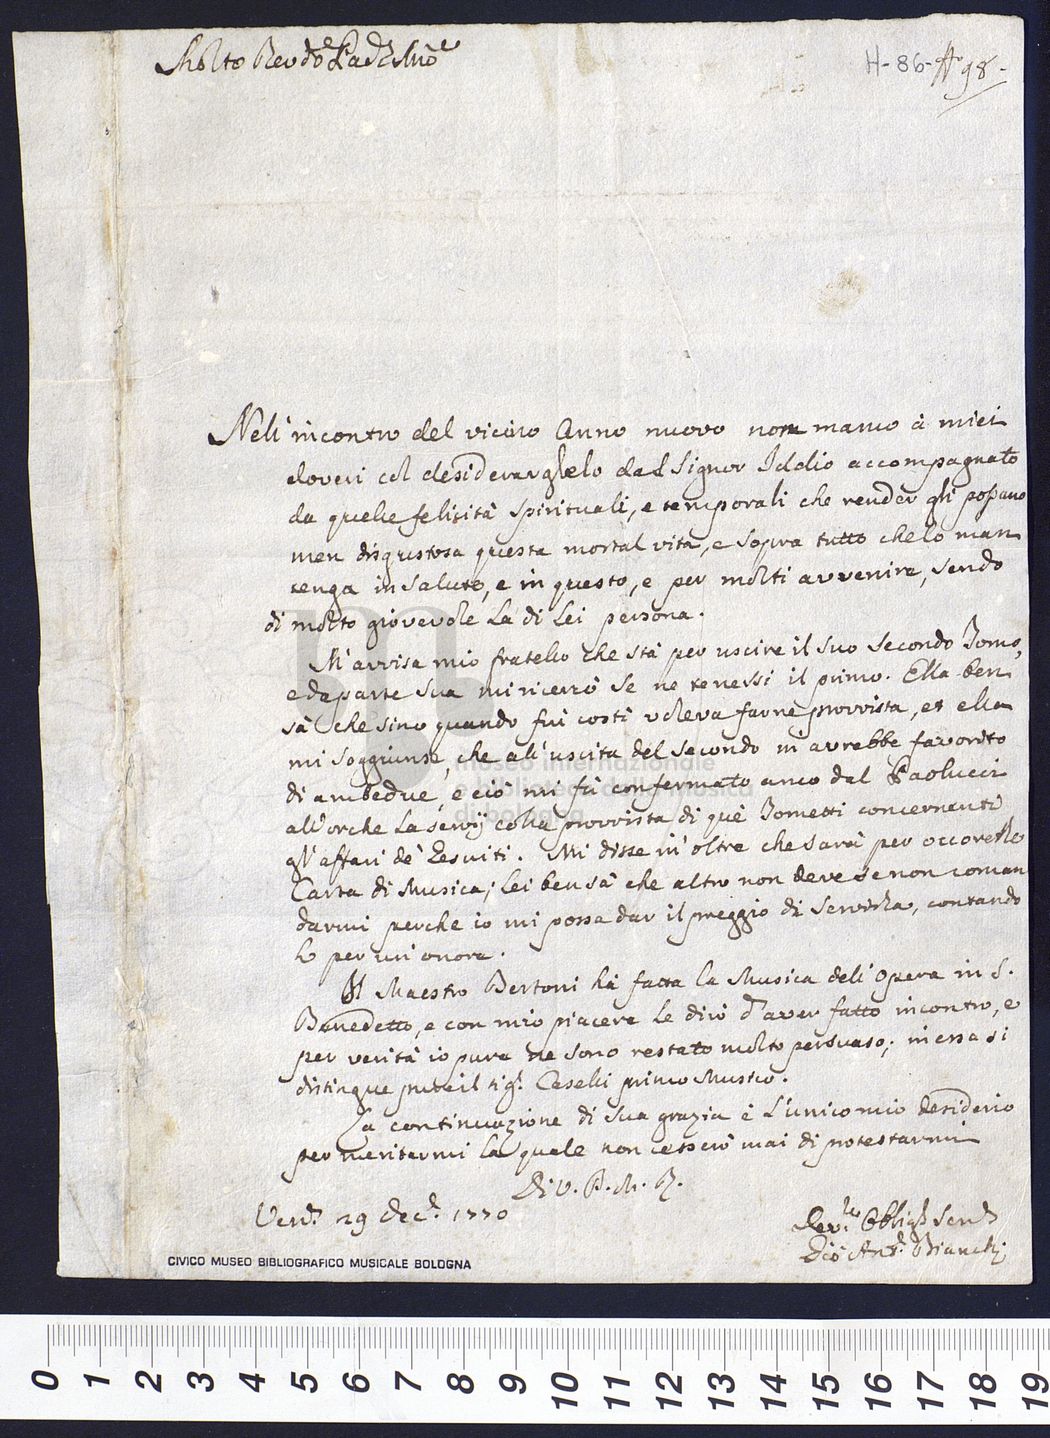 Molto Revdo Padre Mio
H-86-
98-
Nell'incontro del vicino Anno nuovo non manco à miei
doveri col desiderarglielo dal Signor Iddio accompagnato
da quelle felicità spirituali, e temporali che render gli possano
men disgustosa questa mortal vita, e sopra tutto che lo man
tenga in salute, e in questo, e per molti avvenire, sendo
di molto giovevole La di Lei persona.
M'avvisa mio fratello che stà per uscire il suo secondo Tomo,
e da parte sua mi ricercò se ne tenessi il primo. Ella ben
sà che sino quando fui costì voleva farne provvista, et ella
mi soggiunse, che all'uscita del secondo m'avrebbe favorito
di ambedue, e ciò mi fù confermato anco dal Paolucci
all'orche La servij colla provvista di què Tometti concernenti
gl'affari de' Gesuiti. Mi disse in'oltre che sarà per occorerle
Carta di Musica; Lei ben sà che altro non deve se non coman
darmi perche io mi possa dar il preggio di servirla, contando
lo per un'onore.
Il Maestro Bertoni hà fatta la Musica dell'Opera in S.
Benedetto, e con mio piacere Le dirò d'aver fatto incontro, e
per verità io pure ne sono restato molto persuaso; in essa si
distingue pure il Sigr. Caselli primo Musico.
La continuazione di sua grazia è l'unico mio desiderio
per meritarmi la quale non cesserò mai di protestarmi
Di V. P. M. R.
Vena. 29 Dec. 1770
Devmo Obbligo Serve
Gio Ant. Bianchi
museo internazionale
e biblioteca della musica
di bologna
CIVICO MUSEO BIBLIOGRAFICO MUSICALE BOLOGNA
0 1 2 3 4 5 6 7 8 9 10 11 12 13 14 15 16 17 18 19